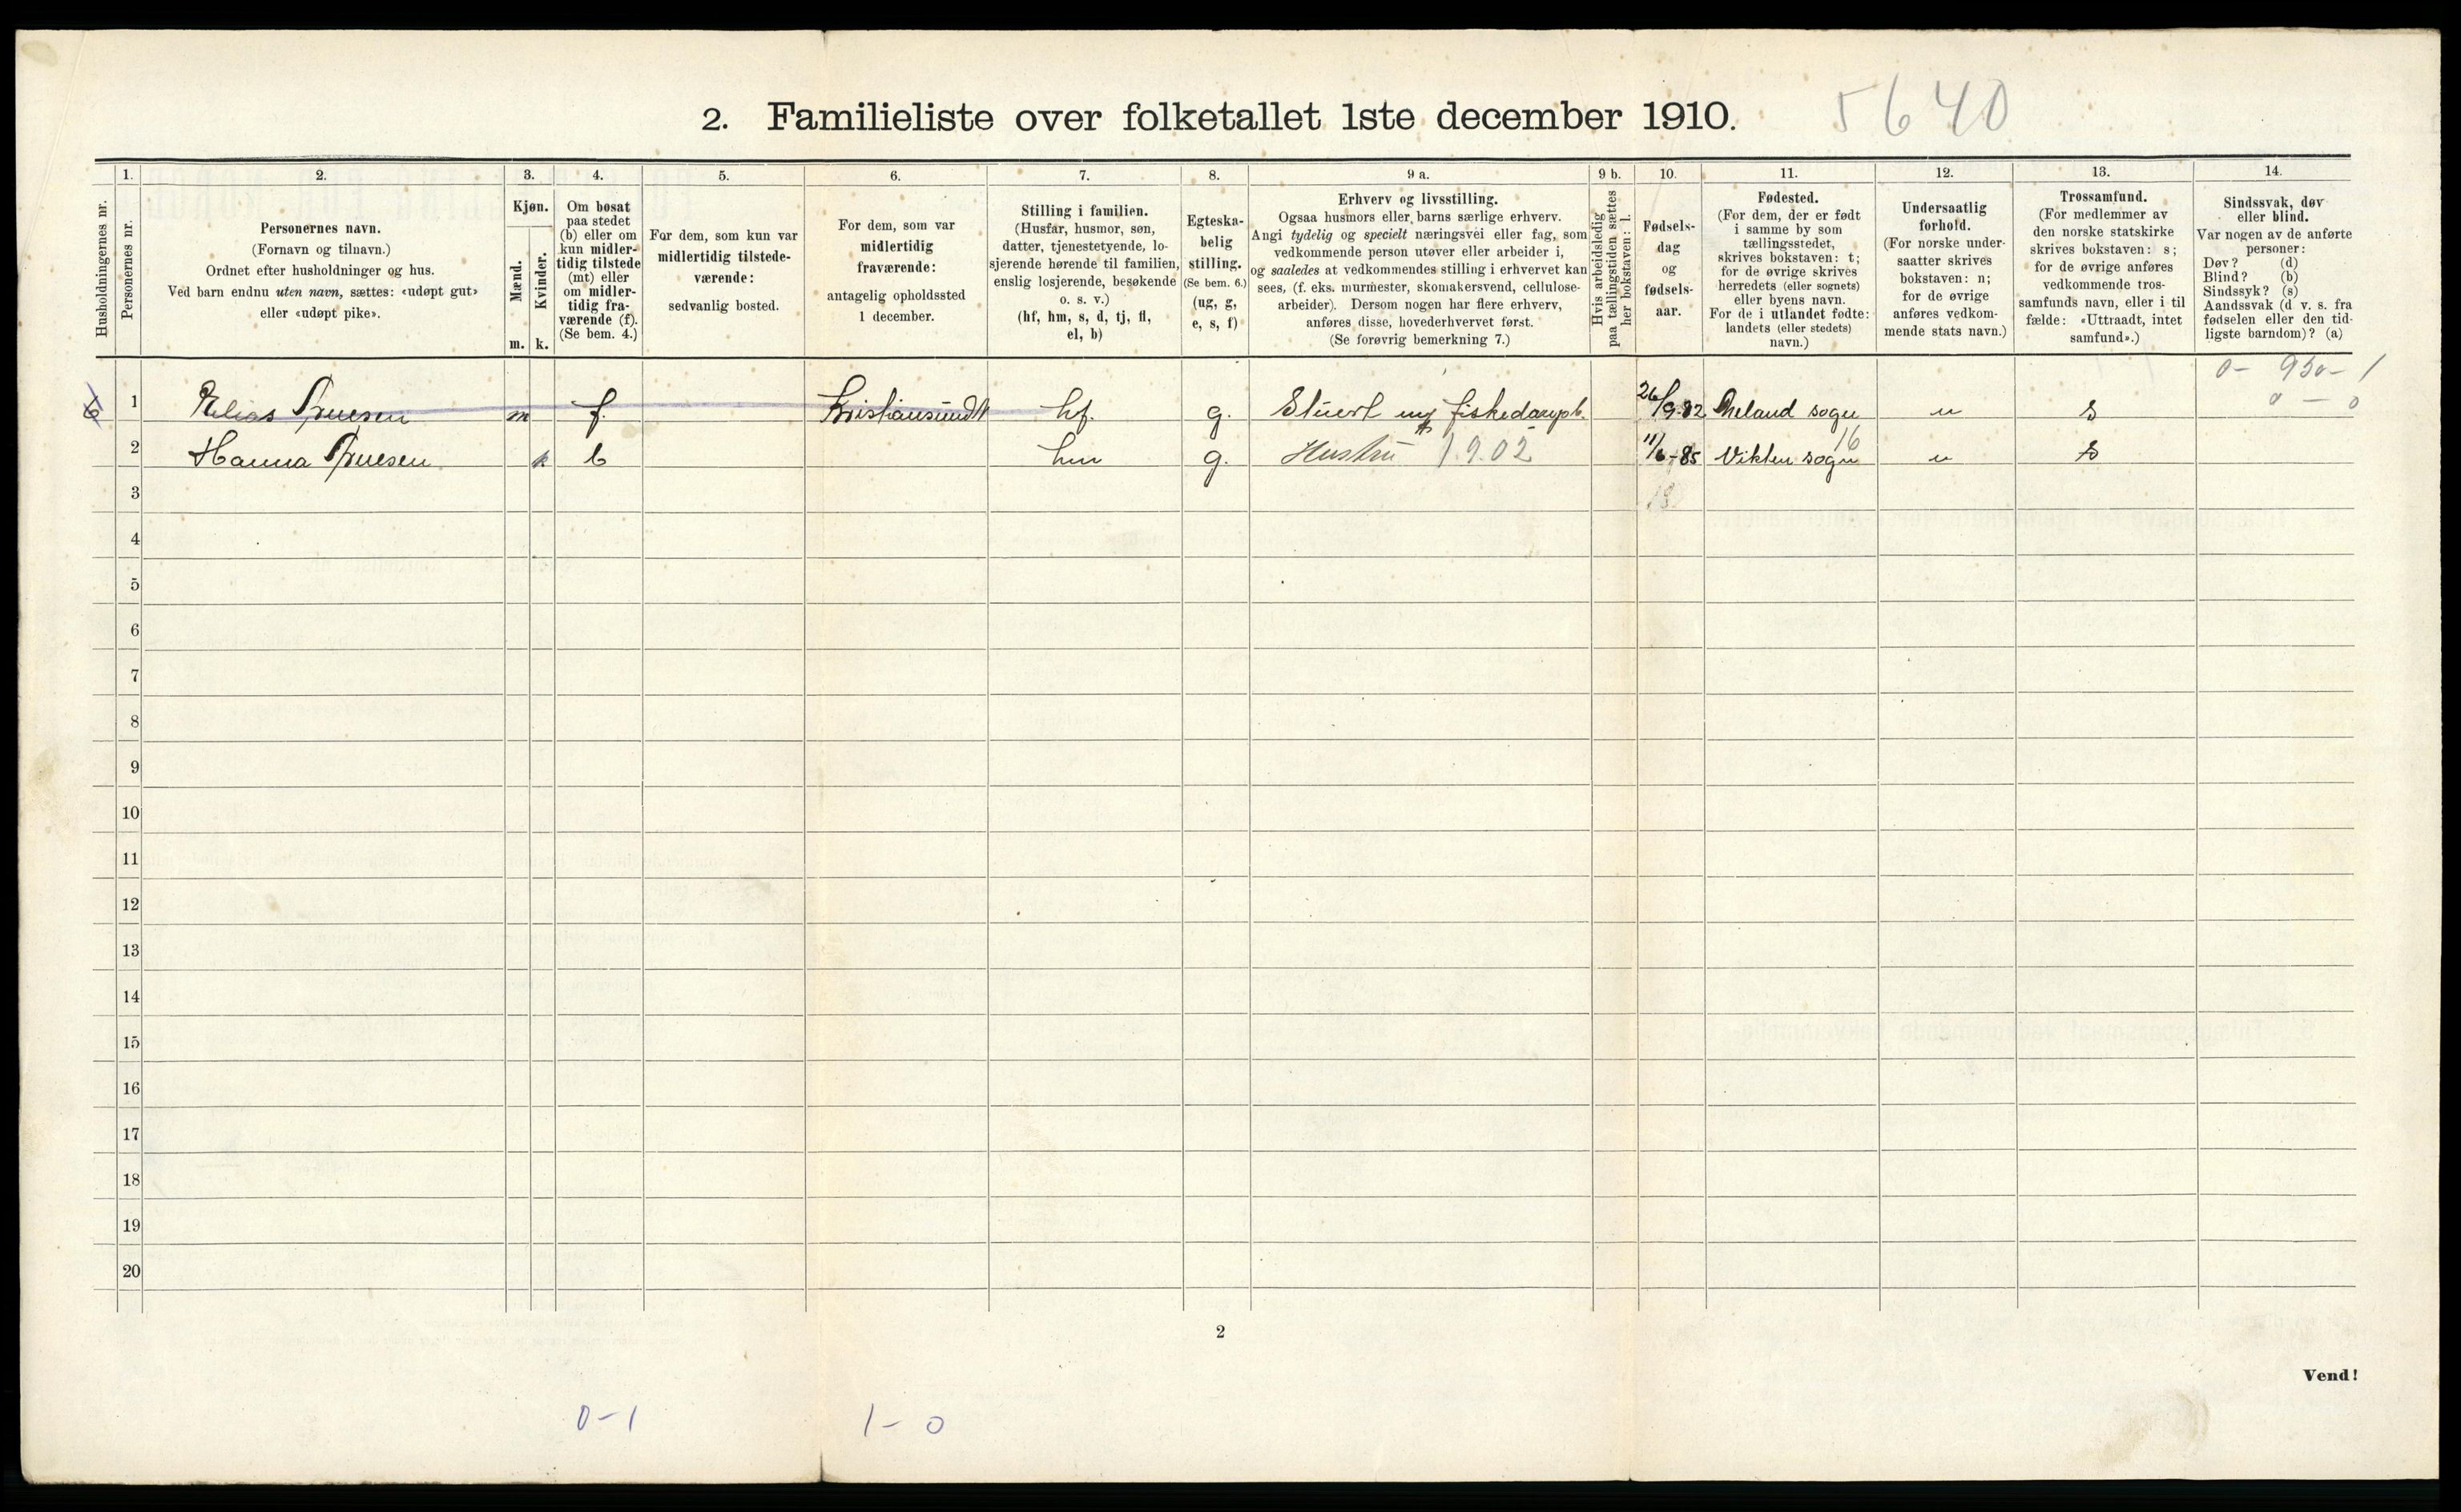 2. Familieliste over folketallet 1ste december 1910. 5640
1. 2. 3. 4. 5. 6. 7. 8. 9 a. 9 b. 10. 11. 12. 13. 14.
Husholdningernes nr.
Personernes nr.
Personernes navn.
(Fornavn og tilnavn.)
Ordnet efter husholdninger og hus.
Ved barn endnu uten navn, sættes: «udøpt gut»
eller «udøpt pike».
Kjøn.
Mænd.
Kvinder.
m. k.
Om bosat
paa stedet
(b) eller om
kun midler-
tidig tilstede
(mt) eller
om midler-
tidig fra-
værende (f).
(Se bem. 4.)
For dem, som kun var
midlertidig tilstede-
værende:
sedvanlig bosted.
For dem, som var
midlertidig
fraværende:
antagelig opholdssted
1 december.
Stilling i familien.
(Husfar, husmor, søn,
datter, tjenestetyende, lo-
sjerende hørende til familien,
enslig losjerende, besøkende
o. s. v.)
(hf, hm, s, d, tj, fl,
el, b)
Egteska-
belig
stilling.
(Se bem. 6.)
(ug, g,
e, s, f)
Erhverv og livsstilling.
Ogsaa husmors eller barns særlige erhverv.
Angi tydelig og specielt næringsvei eller fag, som
vedkommende person utøver eller arbeider i,
og saaledes at vedkommendes stilling i erhvervet kan
sees, (f. eks. murmester, skomakersvend, cellulose-
arbeider). Dersom nogen har flere erhverv,
anføres disse, hovederhvervet først.
(Se forøvrig bemerkning 7.)
Hvis arbeidsledig
paa tællingstiden sættes
her bokstaven: l.
Fødsels-
dag
og
fødsels-
aar.
Fødested.
(For dem, der er født
i samme by som
tællingsstedet,
skrives bokstaven: t;
for de øvrige skrives
herredets (eller sognets)
eller byens navn.
For de i utlandet fødte:
landets (eller stedets)
navn.)
Undersaatlig
forhold.
(For norske under-
saatter skrives
bokstaven: n;
for de øvrige
anføres vedkom-
mende stats navn.)
Trossamfund.
(For medlemmer av
den norske statskirke
skrives bokstaven: s;
for de øvrige anføres
vedkommende tros-
samfunds navn, eller i til
fælde: «Uttraadt, intet
samfund».)
Sindssvak, døv
eller blind.
Var nogen av de anførte
personer:
Døv? (d)
Blind? (b)
Sindssyk? (s)
Aandssvak (d v. s. fra
fødselen eller den tid-
ligste barndom)? (a)
0 - 930 - 1
0 - 0
1 Elias m f. hf. g. 26/9-82 sogn n s
2 Hanna k b hm g. Hustru 1902 11/6-85 Vikten sogn 16 n s
3
4
5
6
7
8
9
10
11
12
13
14
15
16
17
18
19
20
2
Vend!
0-1 1-0